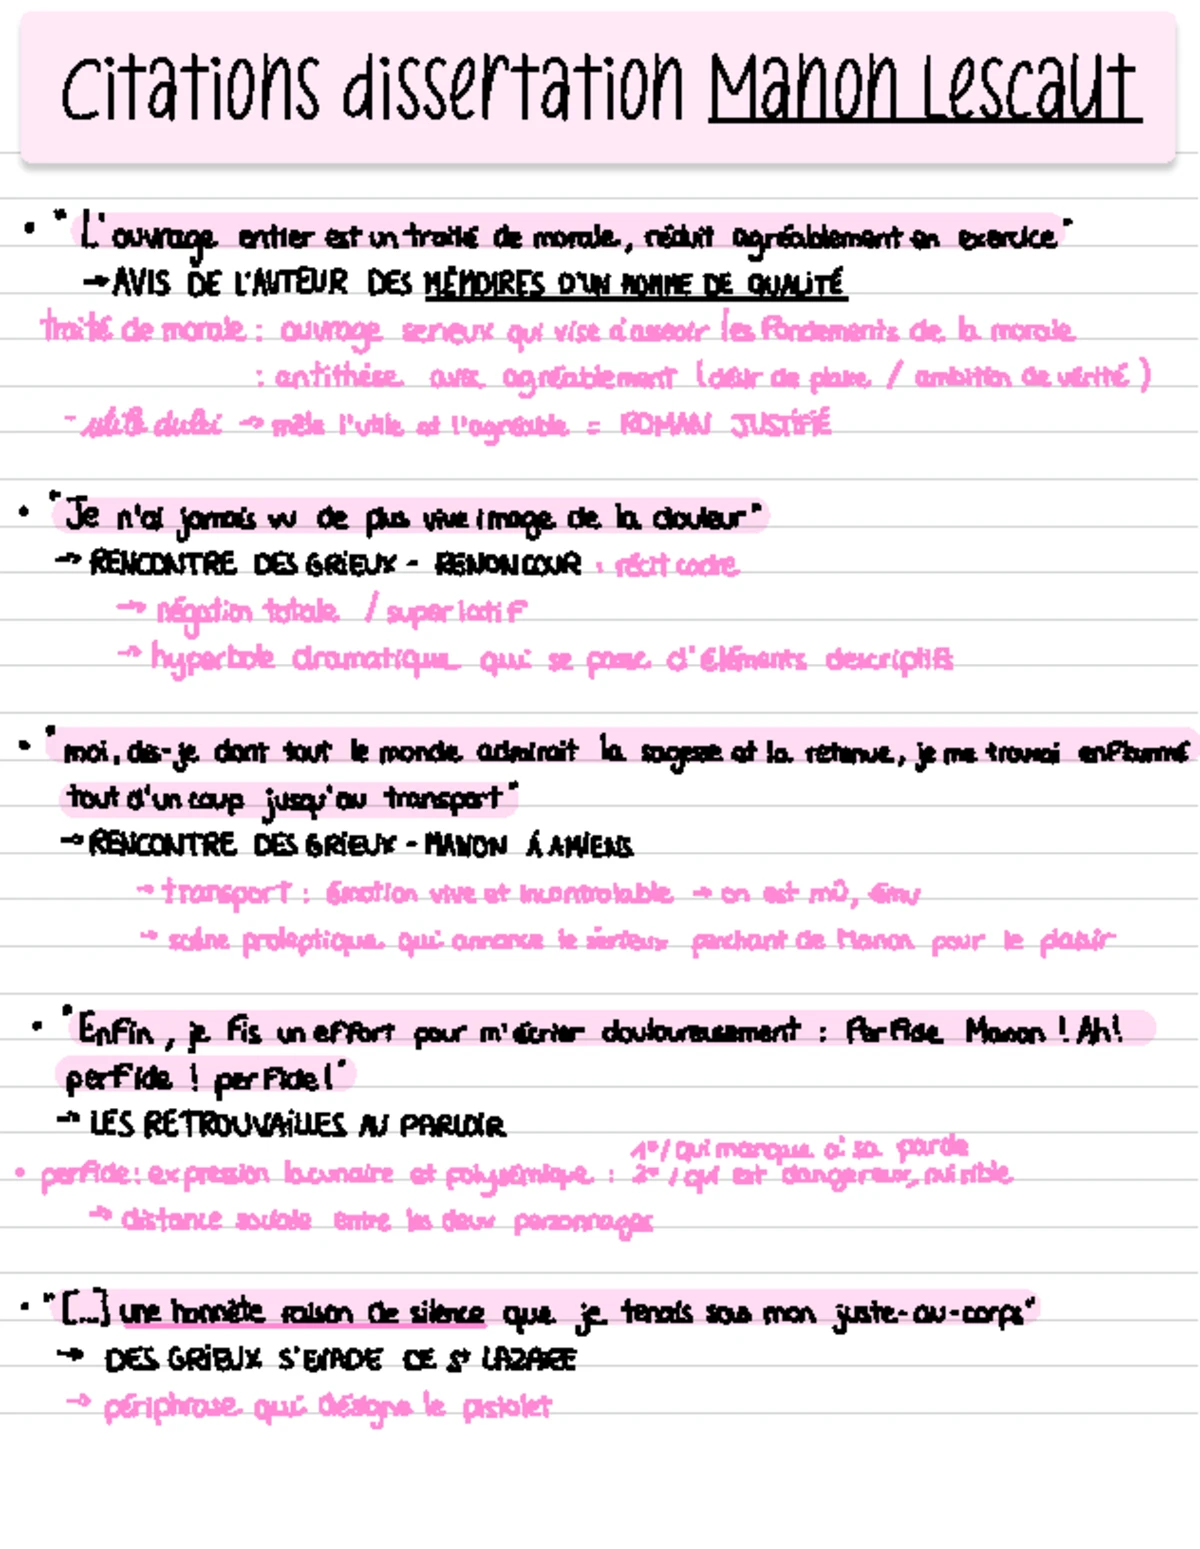 Citations dissertation Manon Lescaut
• "L'ouvrage entier est un traité de morale, réduit agréablement en exercice"
→ AVIS DE L'AUTEUR DES MÉMOIRES D'UN HOMME DE QUALITÉ
traité de morale : ouvrage serieux qui vise d'asseoir les fondements de la morale
: antithèse avec agréablement (désir de plaire / ambition de vérité)
- → mêle l'utile et l'agréable = ROMAN JUSTIFIÉ
• "Je n'ai jamais vu de plus vive image de la douleur"
→ RENCONTRE DES GRIEUX - RENONCOUR : récit cadre
→ négation totale / superlatif
→ hyperbole dramatique qui se passe d'éléments descriptifs
• "moi, dis-je dont tout le monde admirait la sagesse et la retenue, je me trouvai enflammé
tout d'un coup jusqu'au transport"
→ RENCONTRE DES GRIEUX - MANON À AMIENS
→ transport : émotion vive et incontrolable → on est mû, ému
→ scène proleptique qui annonce le sérieux penchant de Manon pour le plaisir
• "Enfin, je fis un effort pour m'écrier douloureusement : Perfide Manon ! Ah !
perfide ! perfide !"
→ LES RETROUVAILLES AU PARLOIR
1°/ qui manque à sa parole
• perfide : expression lacunaire et polysémique : 2° / qui est dangereux, nuisible
→ distance sociale entre les deux personnages
• "[...] une honnête raison de silence que je tenais sous mon juste-au-corps"
→ DES GRIEUX S'EVADE DE St LAZARE
→ périphrase qui désigne le pistolet